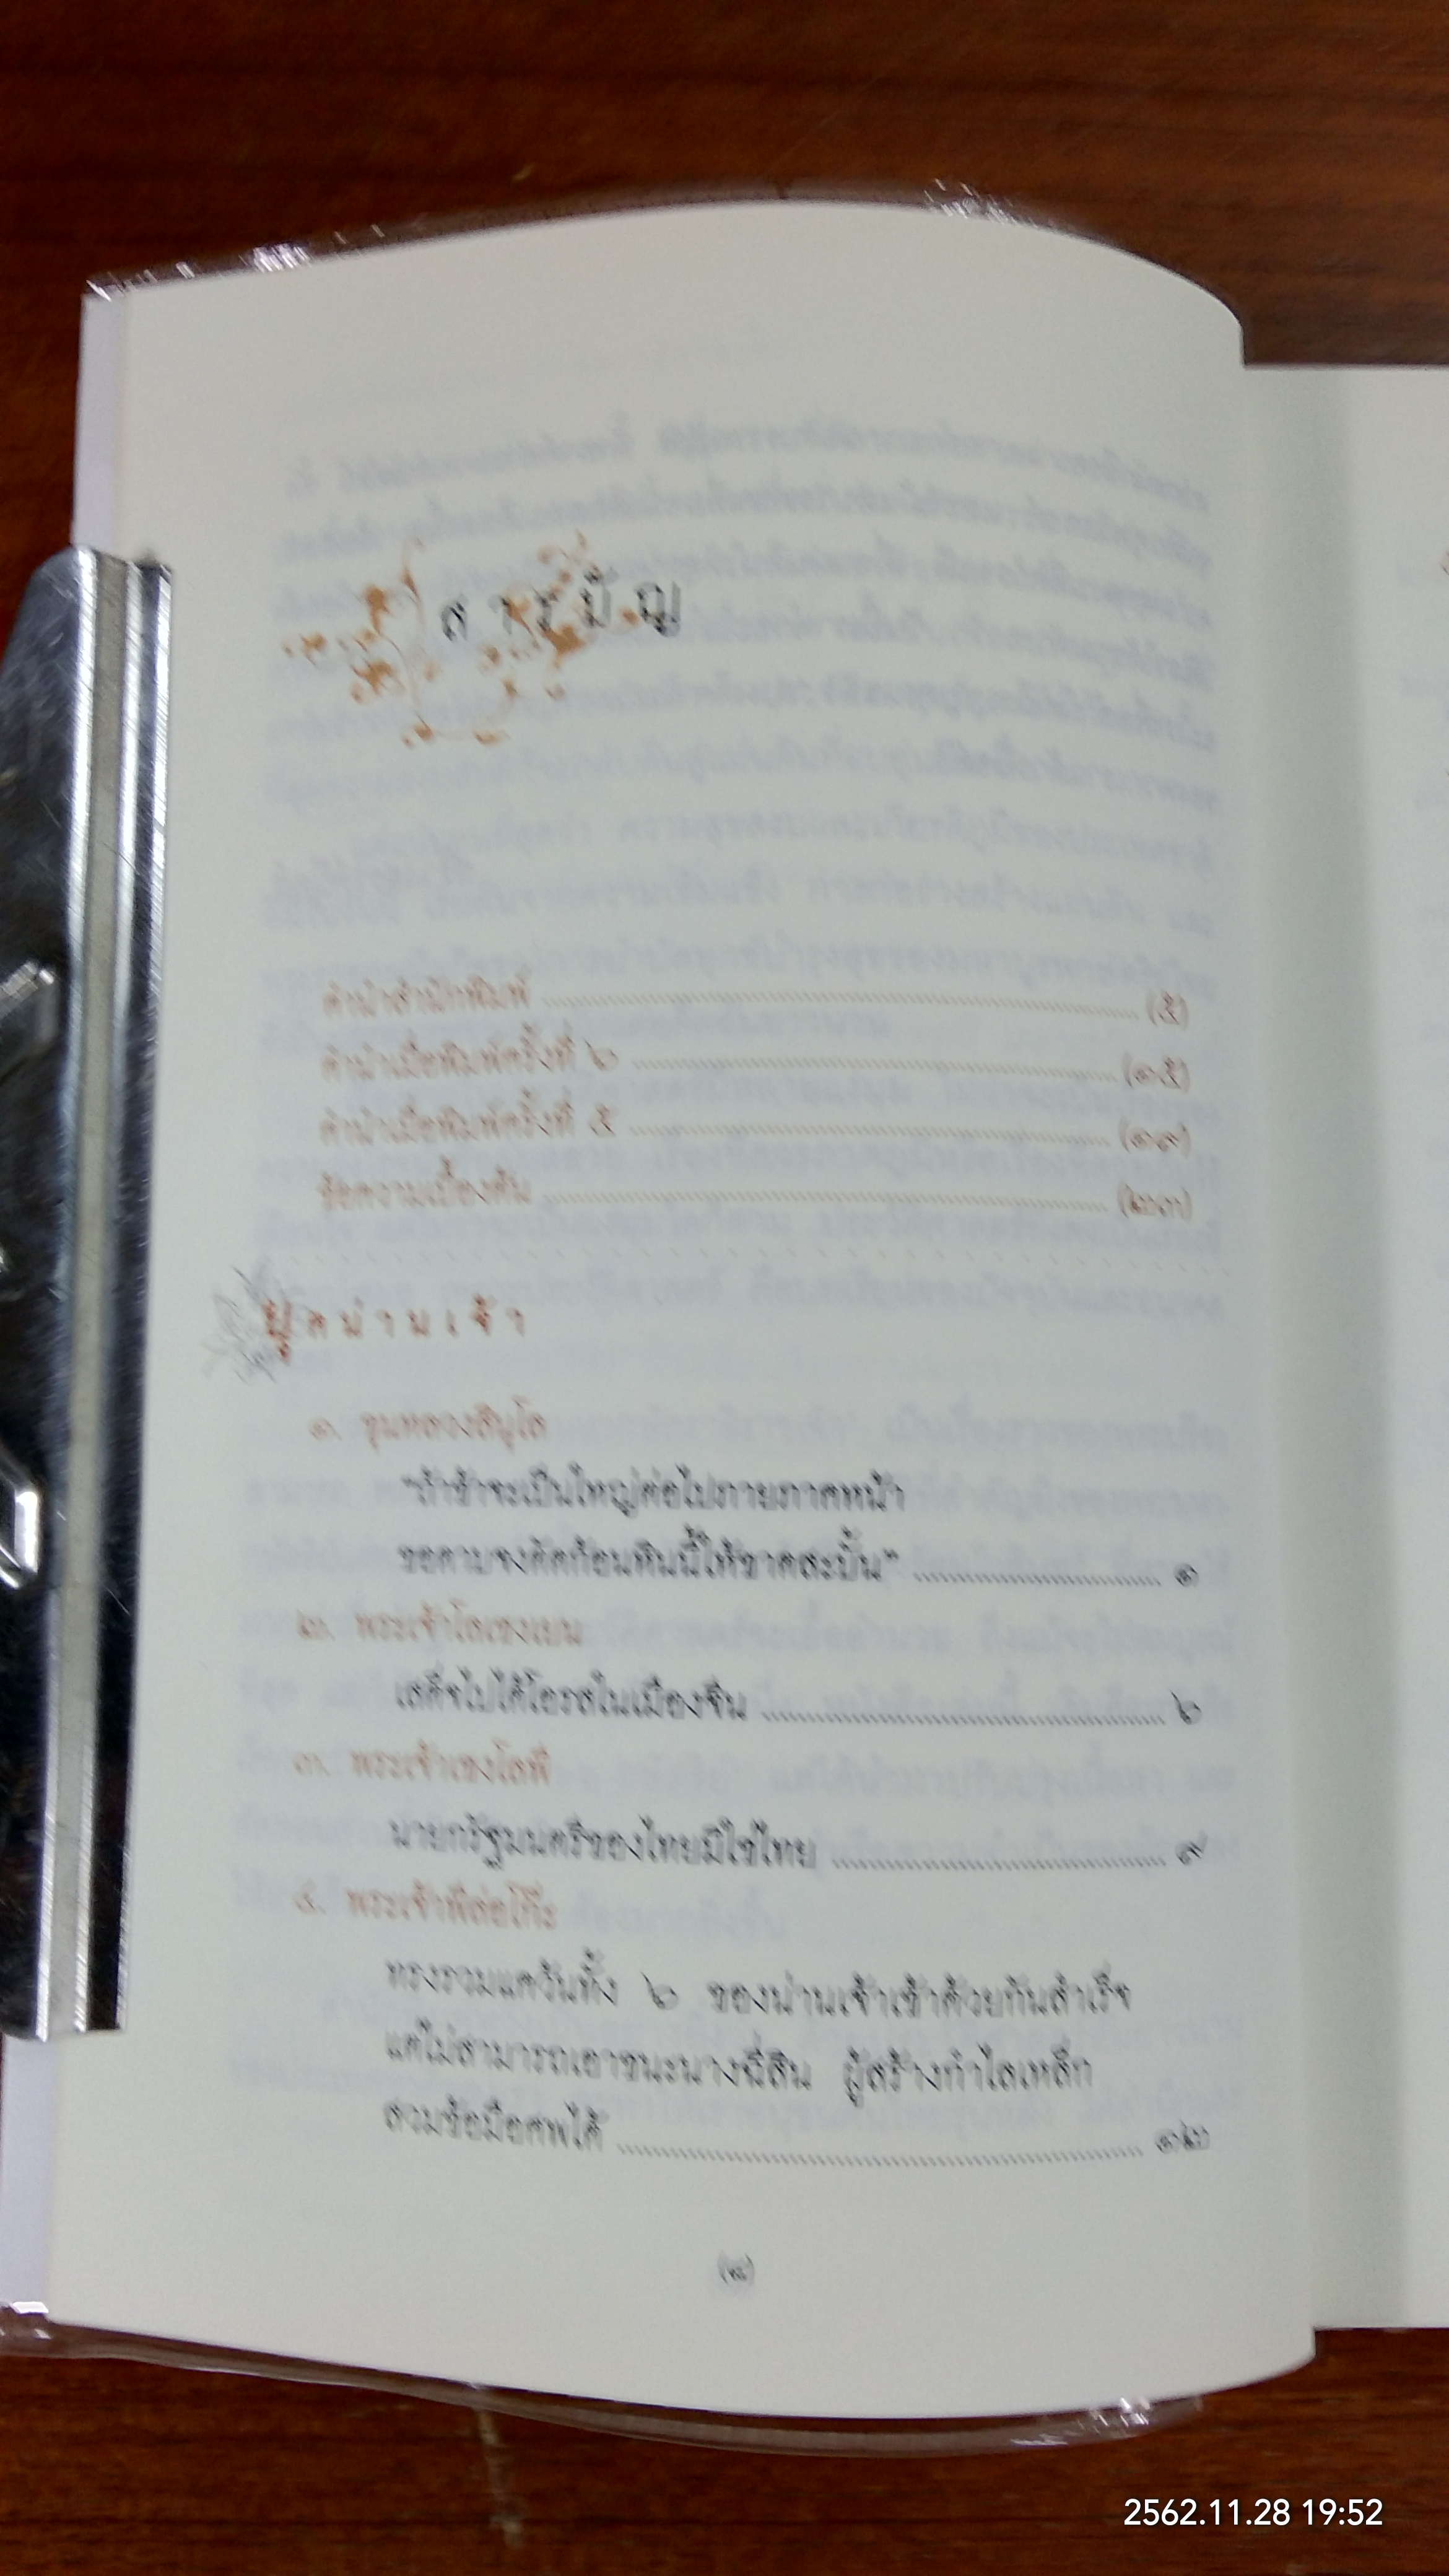 สารบัญ
คำนำสำนักพิมพ์ ........................ (๕)
คำนำเมื่อพิมพ์ครั้งที่ ๒ ........................ (๑๕)
คำนำเมื่อพิมพ์ครั้งที่ ๕ ........................ (๑๙)
ข้อความเบื้องต้น ........................ (๒๓)
ยุคน่านเจ้า
๑. ขุนหลวงสินุโล
"ถ้าข้าจะเป็นใหญ่ต่อไปภายภาคหน้า
ขอดาบจงตัดก้อนหินนี้ให้ขาดสะบั้น" ........................ ๑
๒. พระเจ้าโลเชงเยน
เสด็จไปได้โอรสในเมืองจีน ........................ ๖
๓. พระเจ้าเชงโลพี
นายกรัฐมนตรีของไทยมิใช่ไทย ........................ ๙
๔. พระเจ้าพีล่อโก๊ะ
ทรงรวมแคว้นทั้ง ๖ ของน่านเจ้าเข้าด้วยกันสำเร็จ
แต่ไม่สามารถเอาชนะนางฉี่สิน ผู้สร้างกำไลเหล็ก
สวมข้อมือศพได้ ........................ ๑๒
2562.11.28 19:52